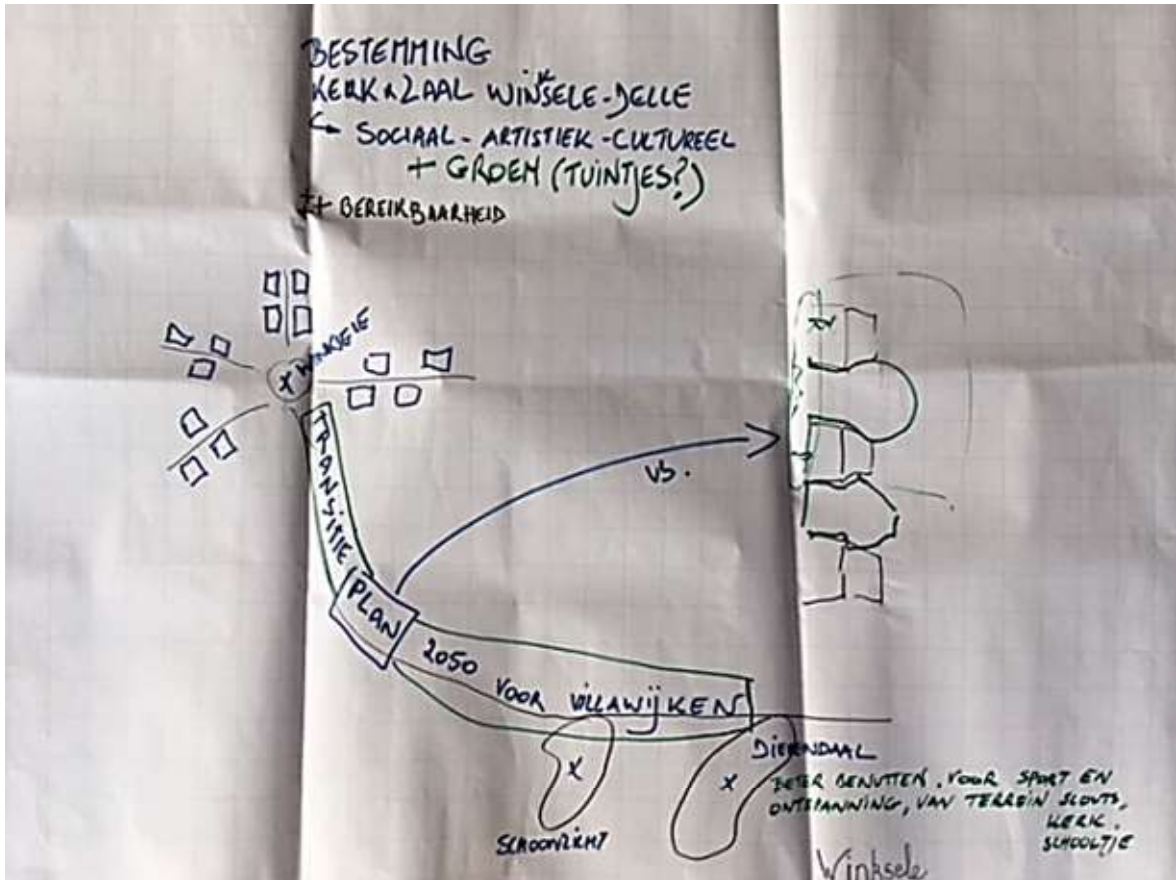 BESTEMMING
KERK & ZAAL WINKSELE-DELLE
↳ SOCIAAL - ARTISTIEK - CULTUREEL
+ GROEN (TUINTJES?)
+ BEREIKBAARHEID
WINKSELE
TRANSITIE
PLAN
2050 VOOR VILLAWIJKEN
VS.
SCHOONZICHT
DIERENDAAL
BETER BENUTTEN. VOOR SPORT EN
ONTSPANNING, VAN TERREIN SCOUTS,
KERK.
SCHOOLTJE
Winksele